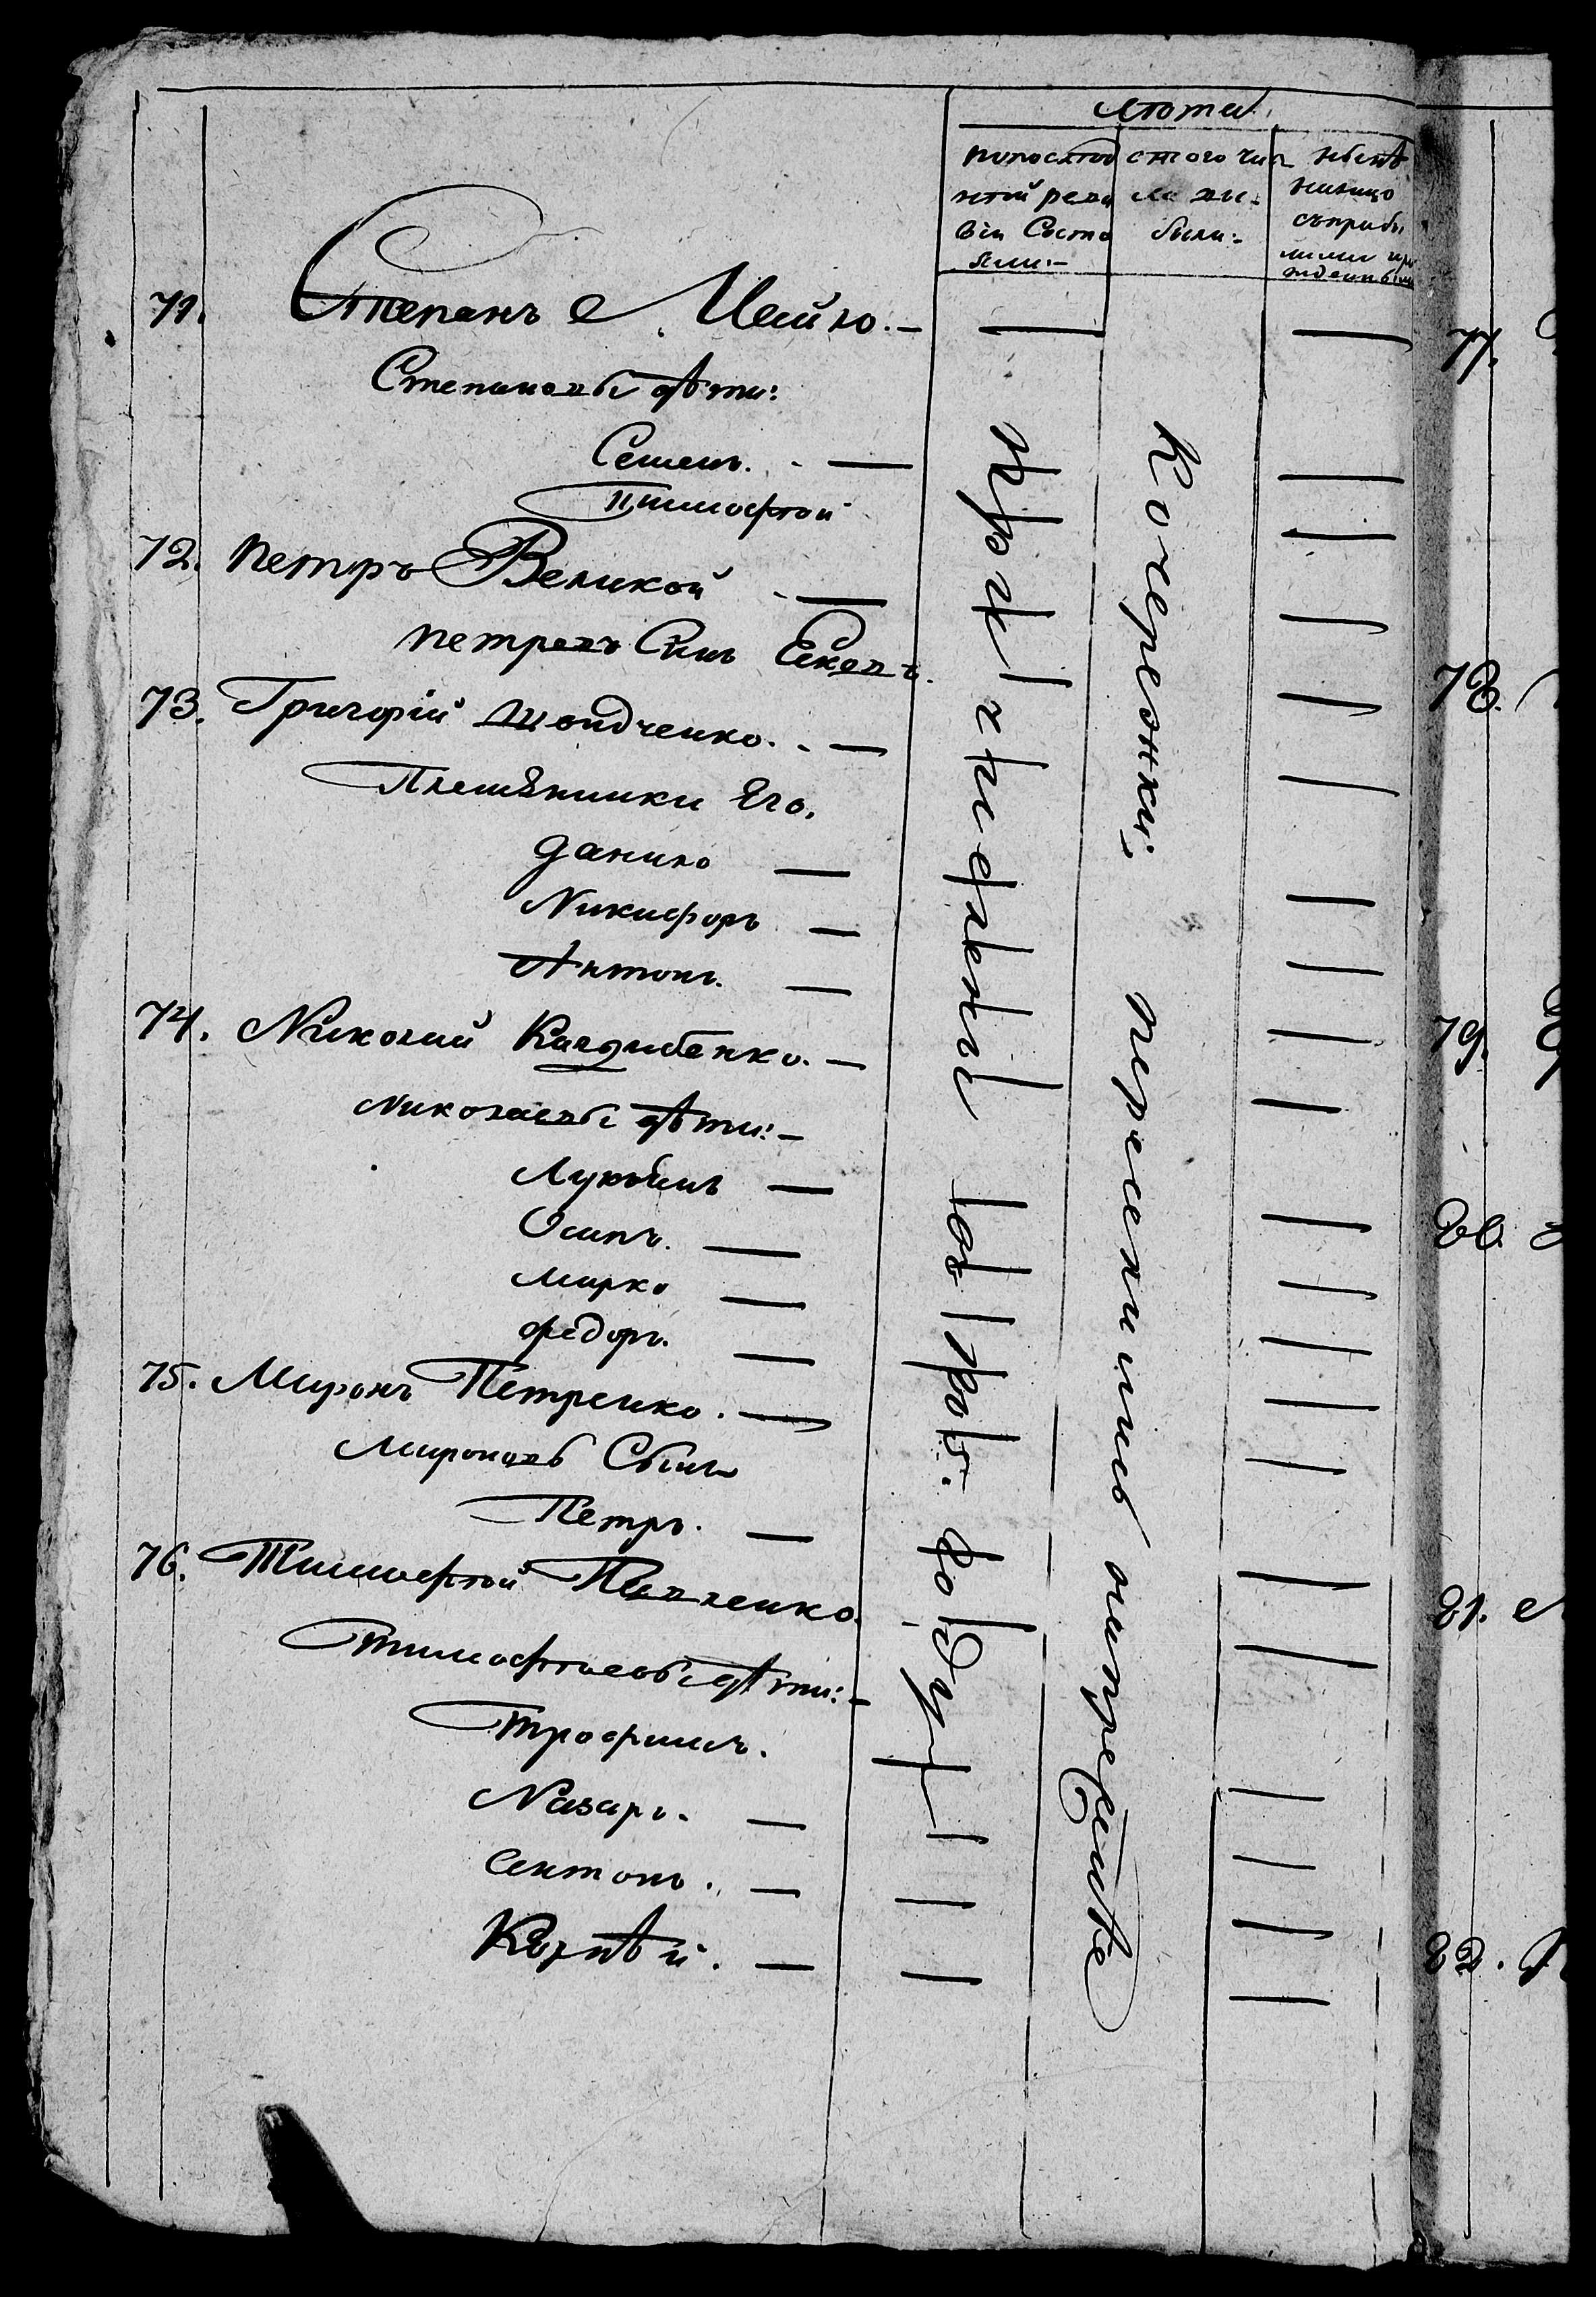 Лѣта
По послѣд
ней реви
зіи Состо
яли:
с того чи
ла вы
были:
Нынѣ
на лицо
съ прибы
лыми и ро
жденными
71. Степанъ Мейло.
Степановы дѣти:
Семенъ.
Тимофей
72. Петръ Великой
Петровъ Сынъ Яковъ.
73. Григорій Дейдченко.
Племянники Его,
Данило
Никифоръ
Антонъ.
74. Николай Кардибенко.
Николаевы дѣти:
Лукьянъ
Осипъ.
Марко
Федоръ.
75. Миронъ Петренко.
Мироновъ Сынъ
Петръ.
76. Тимофей Павленко.
Тимофеевы дѣти:
Трофимъ.
Назаръ.
Антонъ.
Корнѣй.
году
Кочережки,
переселились
77.
78.
79.
80.
81.
82.